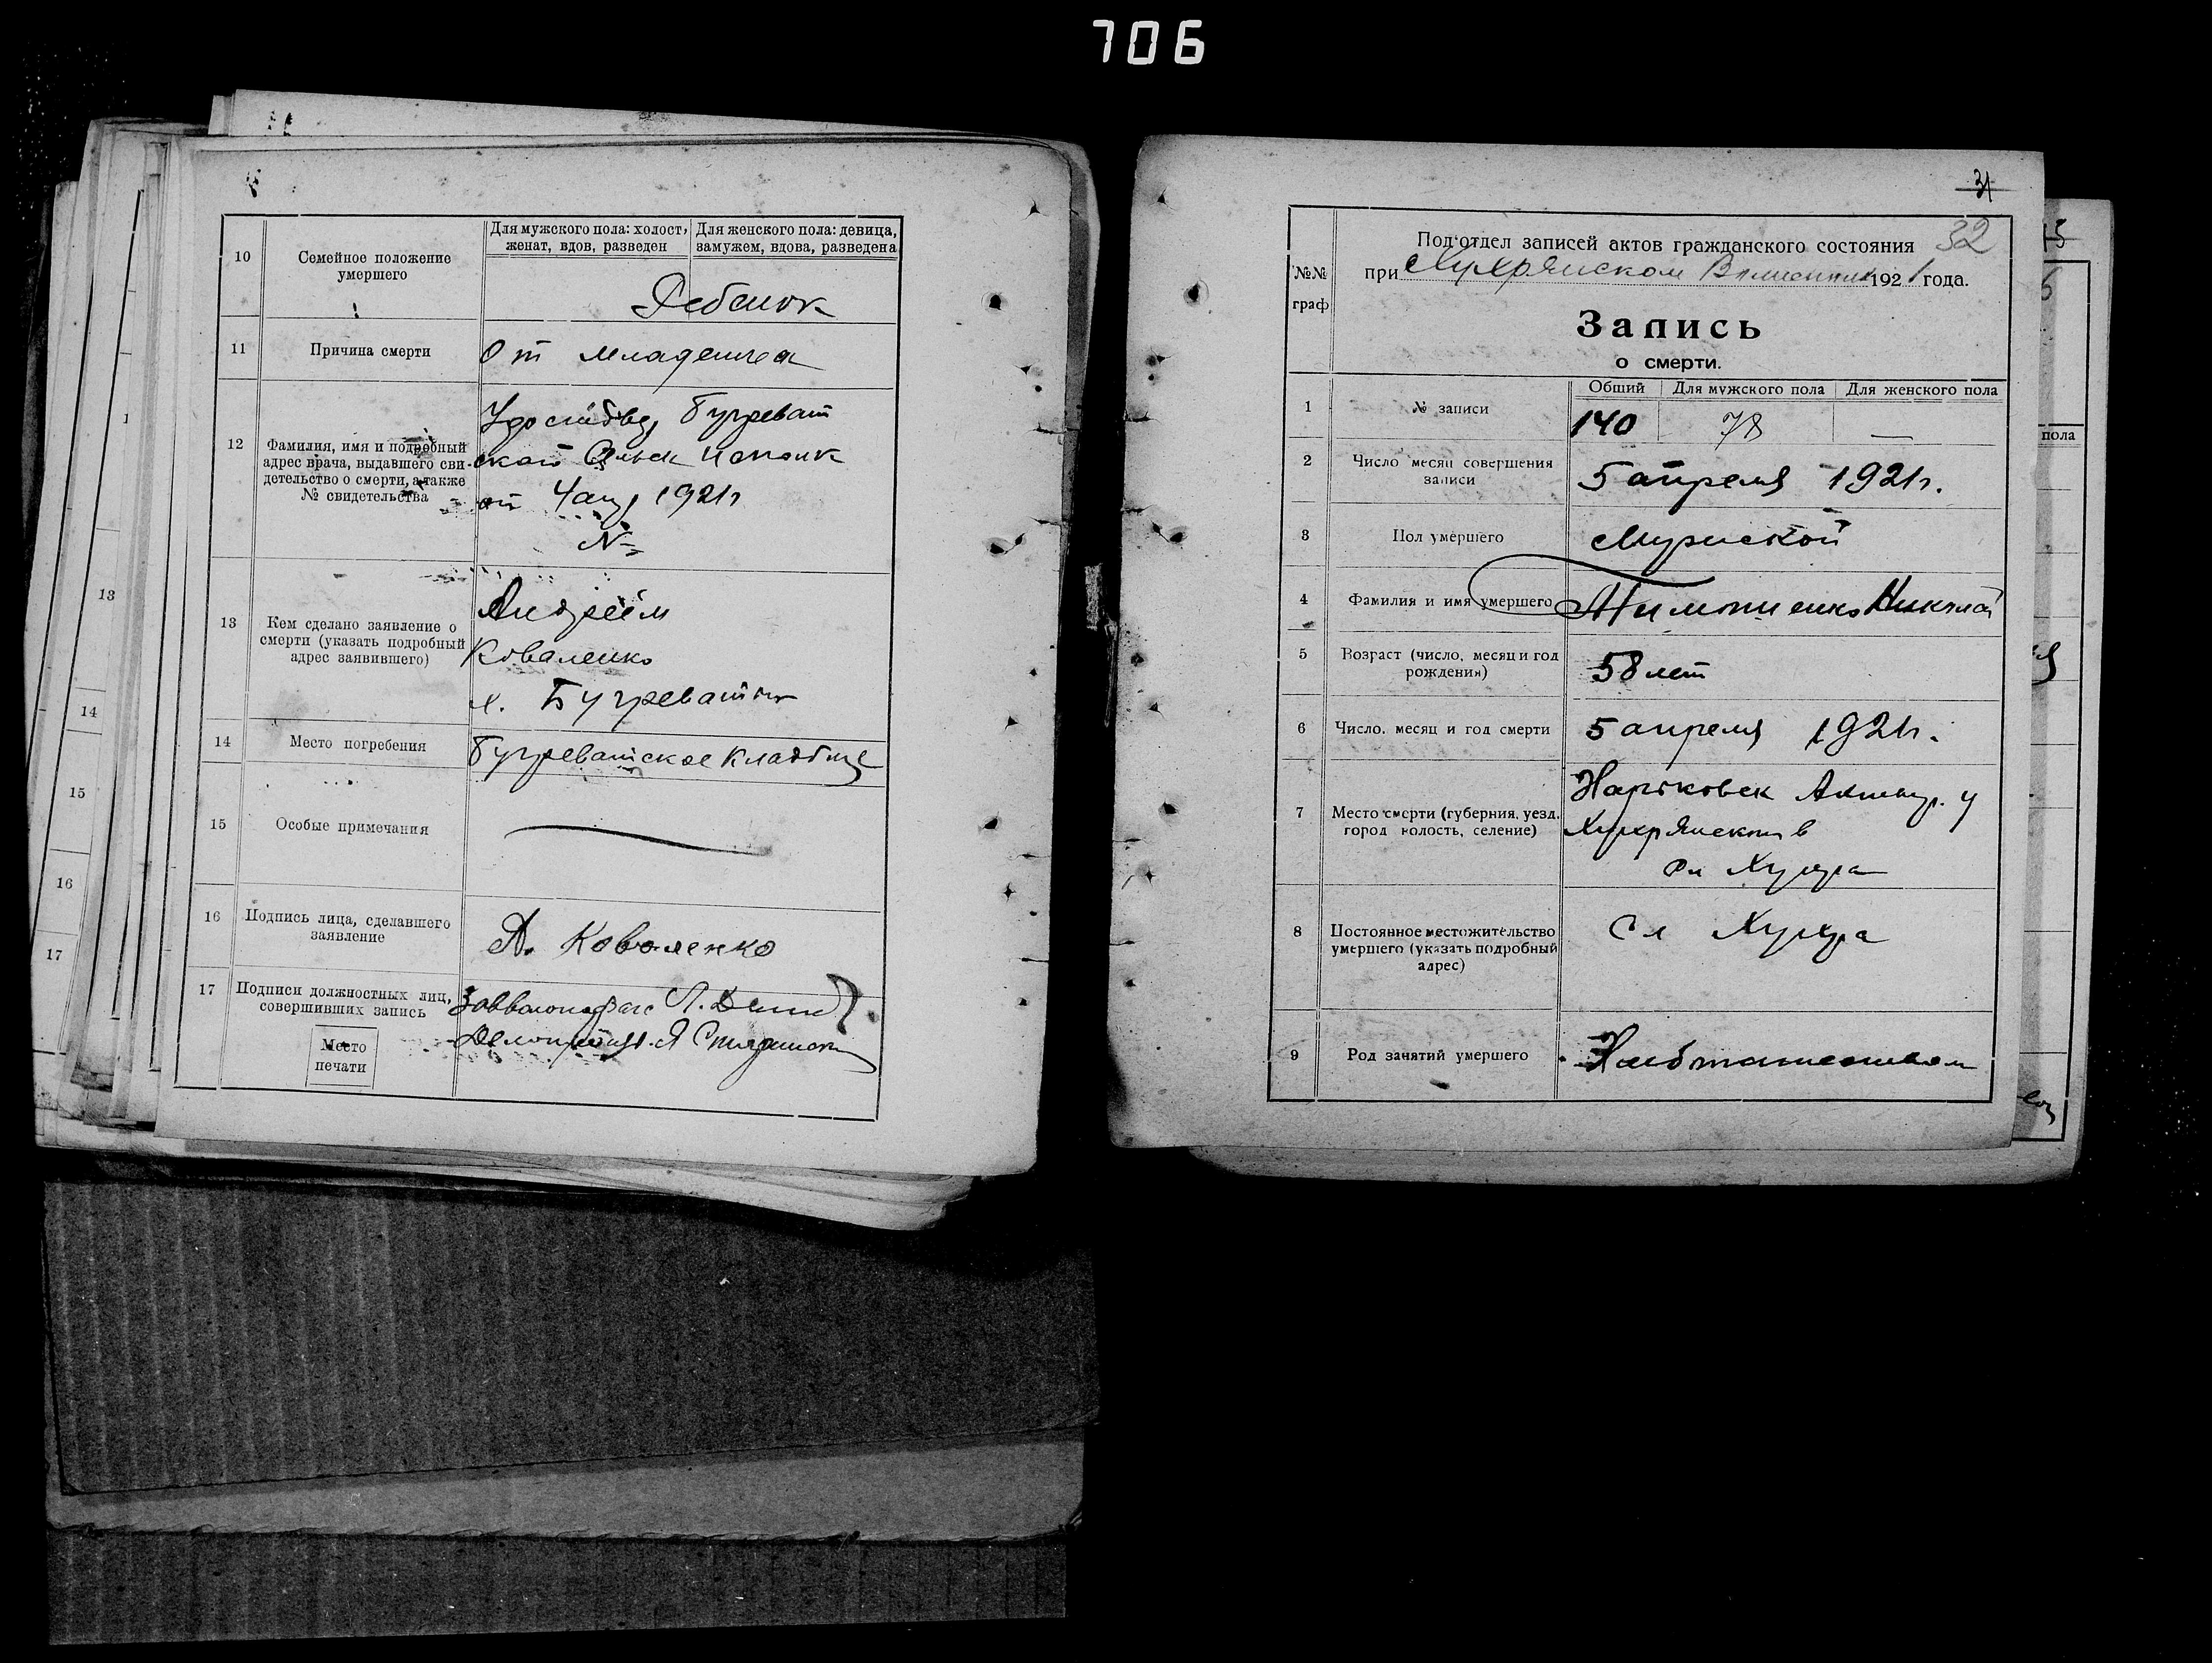 706
10
Семейное положение
умершего
Для мужского пола: холост,
женат, вдов, разведен
Для женского пола: девица,
замужем, вдова, разведена
Ребенок
11
Причина смерти
От младенчеа
12
Фамилия, имя и подробный
адрес врача, выдавшего сви-
детельство о смерти, а также
№ свидетельства
Бугреват
ской
от 4 1921г
№
13
Кем сделано заявление о
смерти (указать подробный
адрес заявившего)
Андреем
Коваленко
х. Бугреватый
14
Место погребения
Бугреватское кладбище
15
Особые примечания
16
Подпись лица, сделавшего
заявление
А. Коваленко
17
Подписи должностных лиц,
совершивших запись
Место
печати
1
13
14
15
16
17
31
32
№№
граф
Под'отдел записей актов гражданского состояния
при Хухрянском 1921 года.
Запись
о смерти.
1
№ записи
Общий
Для мужского пола
Для женского пола
140
78
—
2
Число месяц совершения
записи
5 апреля 1921г.
3
Пол умершего
Мужской
4
Фамилия и имя умершего
Николай
5
Возраст (число, месяц и год
рождения)
58 лет
6
Число, месяц и год смерти
5 апреля 1921г.
7
Место смерти (губерния, уезд,
город волость, селение)
Харьковск Ахтыр. у
Хухрянской в
сл Хухра
8
Постоянное местожительство
умершего (указать подробный
адрес)
Сл Хухра
9
Род занятий умершего
Хлебопашеством
пола